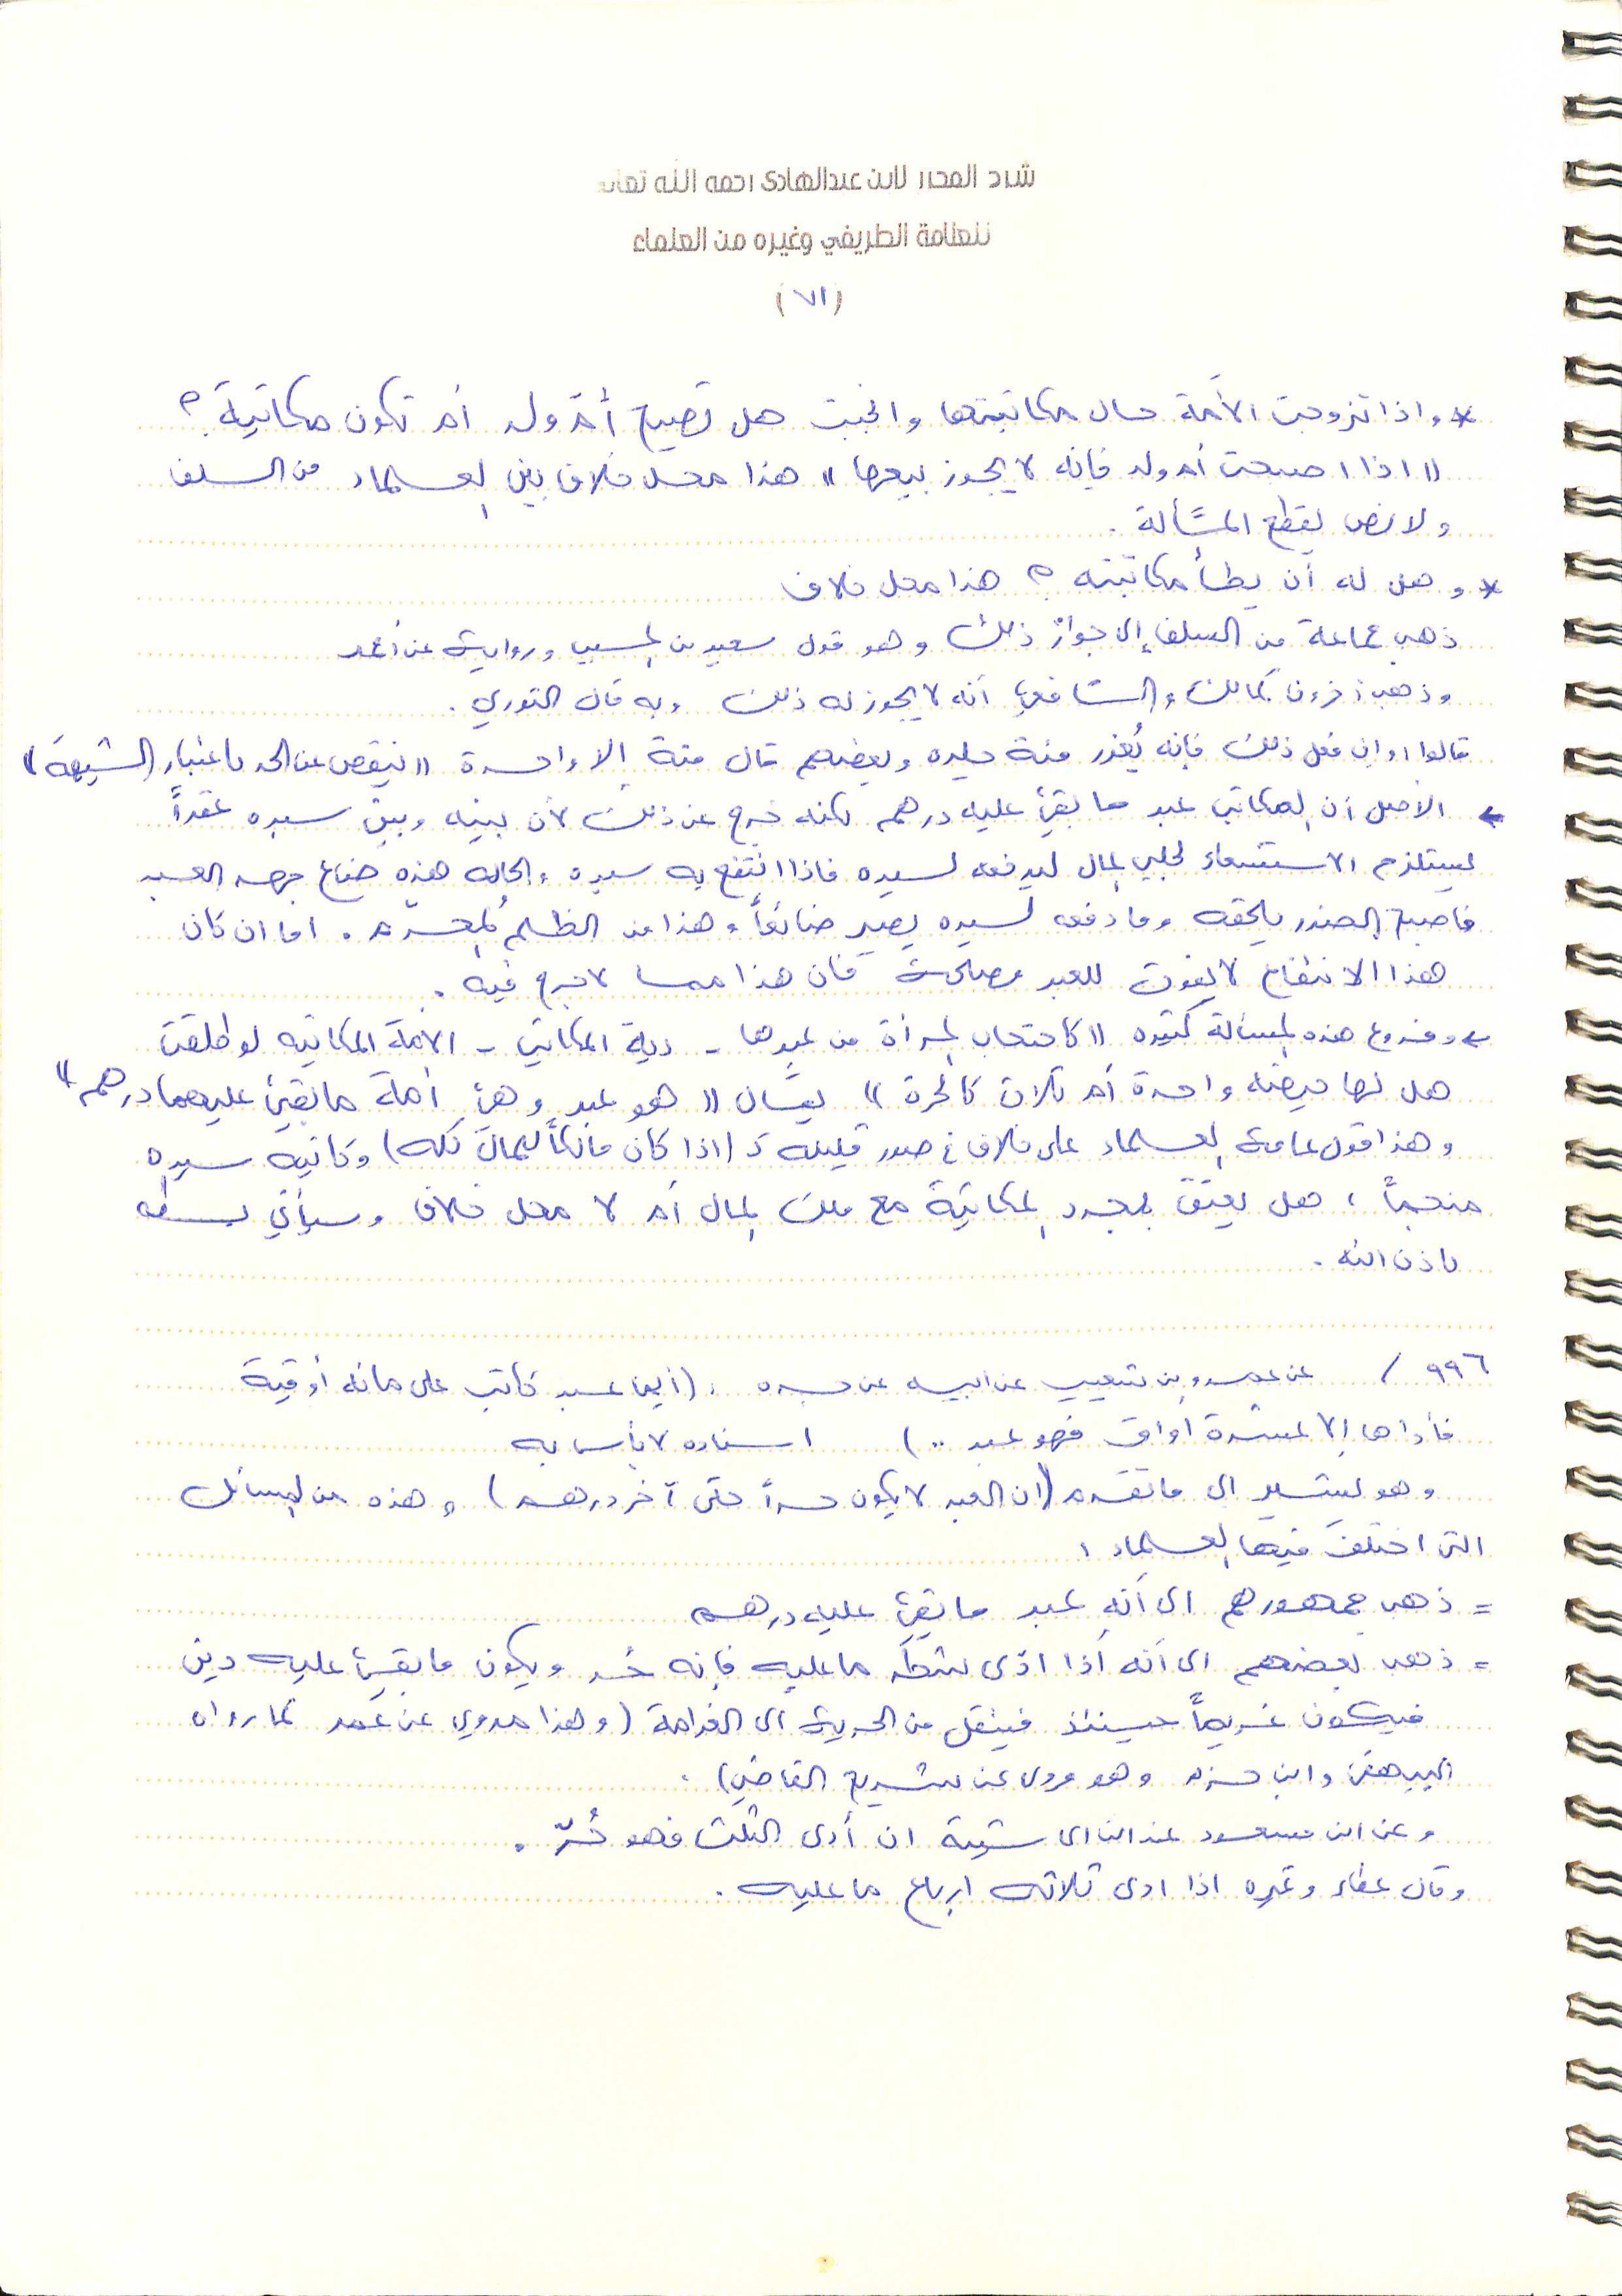 شرح المحرر لابن عبدالهادي رحمه الله تعالى
للعلامة الطريفي وغيره من العلماء
(٧١)
* واذا تزوجت الأمة حال مكاتبتها وانجبت هل تصبح أم ولد أم تكون مكاتبة ؟
(( اذا اصبحت أم ولد فإنه لا يجوز بيعها )) هذا محل خلاف بين العلماء من السلف
ولا نص يقطع المسألة .
* وهل له أن يطأ مكاتبته ؟ هذا محل خلاف
ذهب جماعة من السلف إلى جواز ذلك وهو قول سعيد بن المسيب ورواية عن أحمد
وذهب آخرون كمالك والشافعي أنه لا يجوز له ذلك وبه قال الثوري .
قالوا : وإن فعل ذلك فإنه يُعزر مئة جلده وبعضهم قال مئة إلا واحدة (( ينقص عن الحد باعتبار الشبهة ))
← الأصل أن المكاتب عبد ما بقي عليه درهم لكنه خرج عن ذلك لأن بينه وبين سيده عقداً
يستلزم الاستسعاء لجلب المال ليدفعه لسيده فاذا انتفع به سيده والحاله هذه ضاع جهد العبد
فاصبح الضرر يلحقه وما دفعه لسيده يصير ضائعاً وهذا من الظلم المحرم . اما ان كان
هذا الانتفاع لا يفوت للعبد مصلحة فان هذا مما لا حرج فيه .
← وفروع هذه المسألة كثيره (( كاحتجاب المرأة من عبدها - دية المكاتب - الأمة المكاتبه لو طلقت
هل لها حيضه واحدة أم ثلاث كالحرة )) يقال (( هو عبد وهي أمة ما بقي عليهما درهم ))
وهذا قول عامة العلماء على خلاف في صور قليلة كـ (اذا كان مالكاً للمال كله) وكاتبه سيده
منجماً ، هل يعتق بمجرد المكاتبة مع ملك المال أم لا محل خلاف وسيأتي بسطه
باذن الله .
٩٩٦ / عن عمرو بن شعيب عن ابيه عن جده : (أيما عبد كاتب على مائه أوقية
فأداها إلا عشرة أواق فهو عبد ..) اسناده لا بأس به
وهو يشير الى ما تقدم (ان العبد لا يكون حراً حتى آخر درهم) وهذه من المسائل
التي اختلف فيها العلماء :
= ذهب جمهورهم الى أنه عبد ما بقي عليه درهم
= ذهب بعضهم الى أنه اذا ادّى شطر ما عليه فإنه حُر ويكون ما بقي عليه دين
فيكون غريماً حينئذ فينقل من الحرية الى الغرامة (وهذا مروي عن عمر كما رواه
البيهقي وابن حزم وهو مروى عن شريح القاضي) .
وعن ابن مسعود عند ابن ابي شيبة ان أدى الثلث فهو حُرّ .
وقال عطاء وغيره اذا ادى ثلاثه ارباع ما عليه .